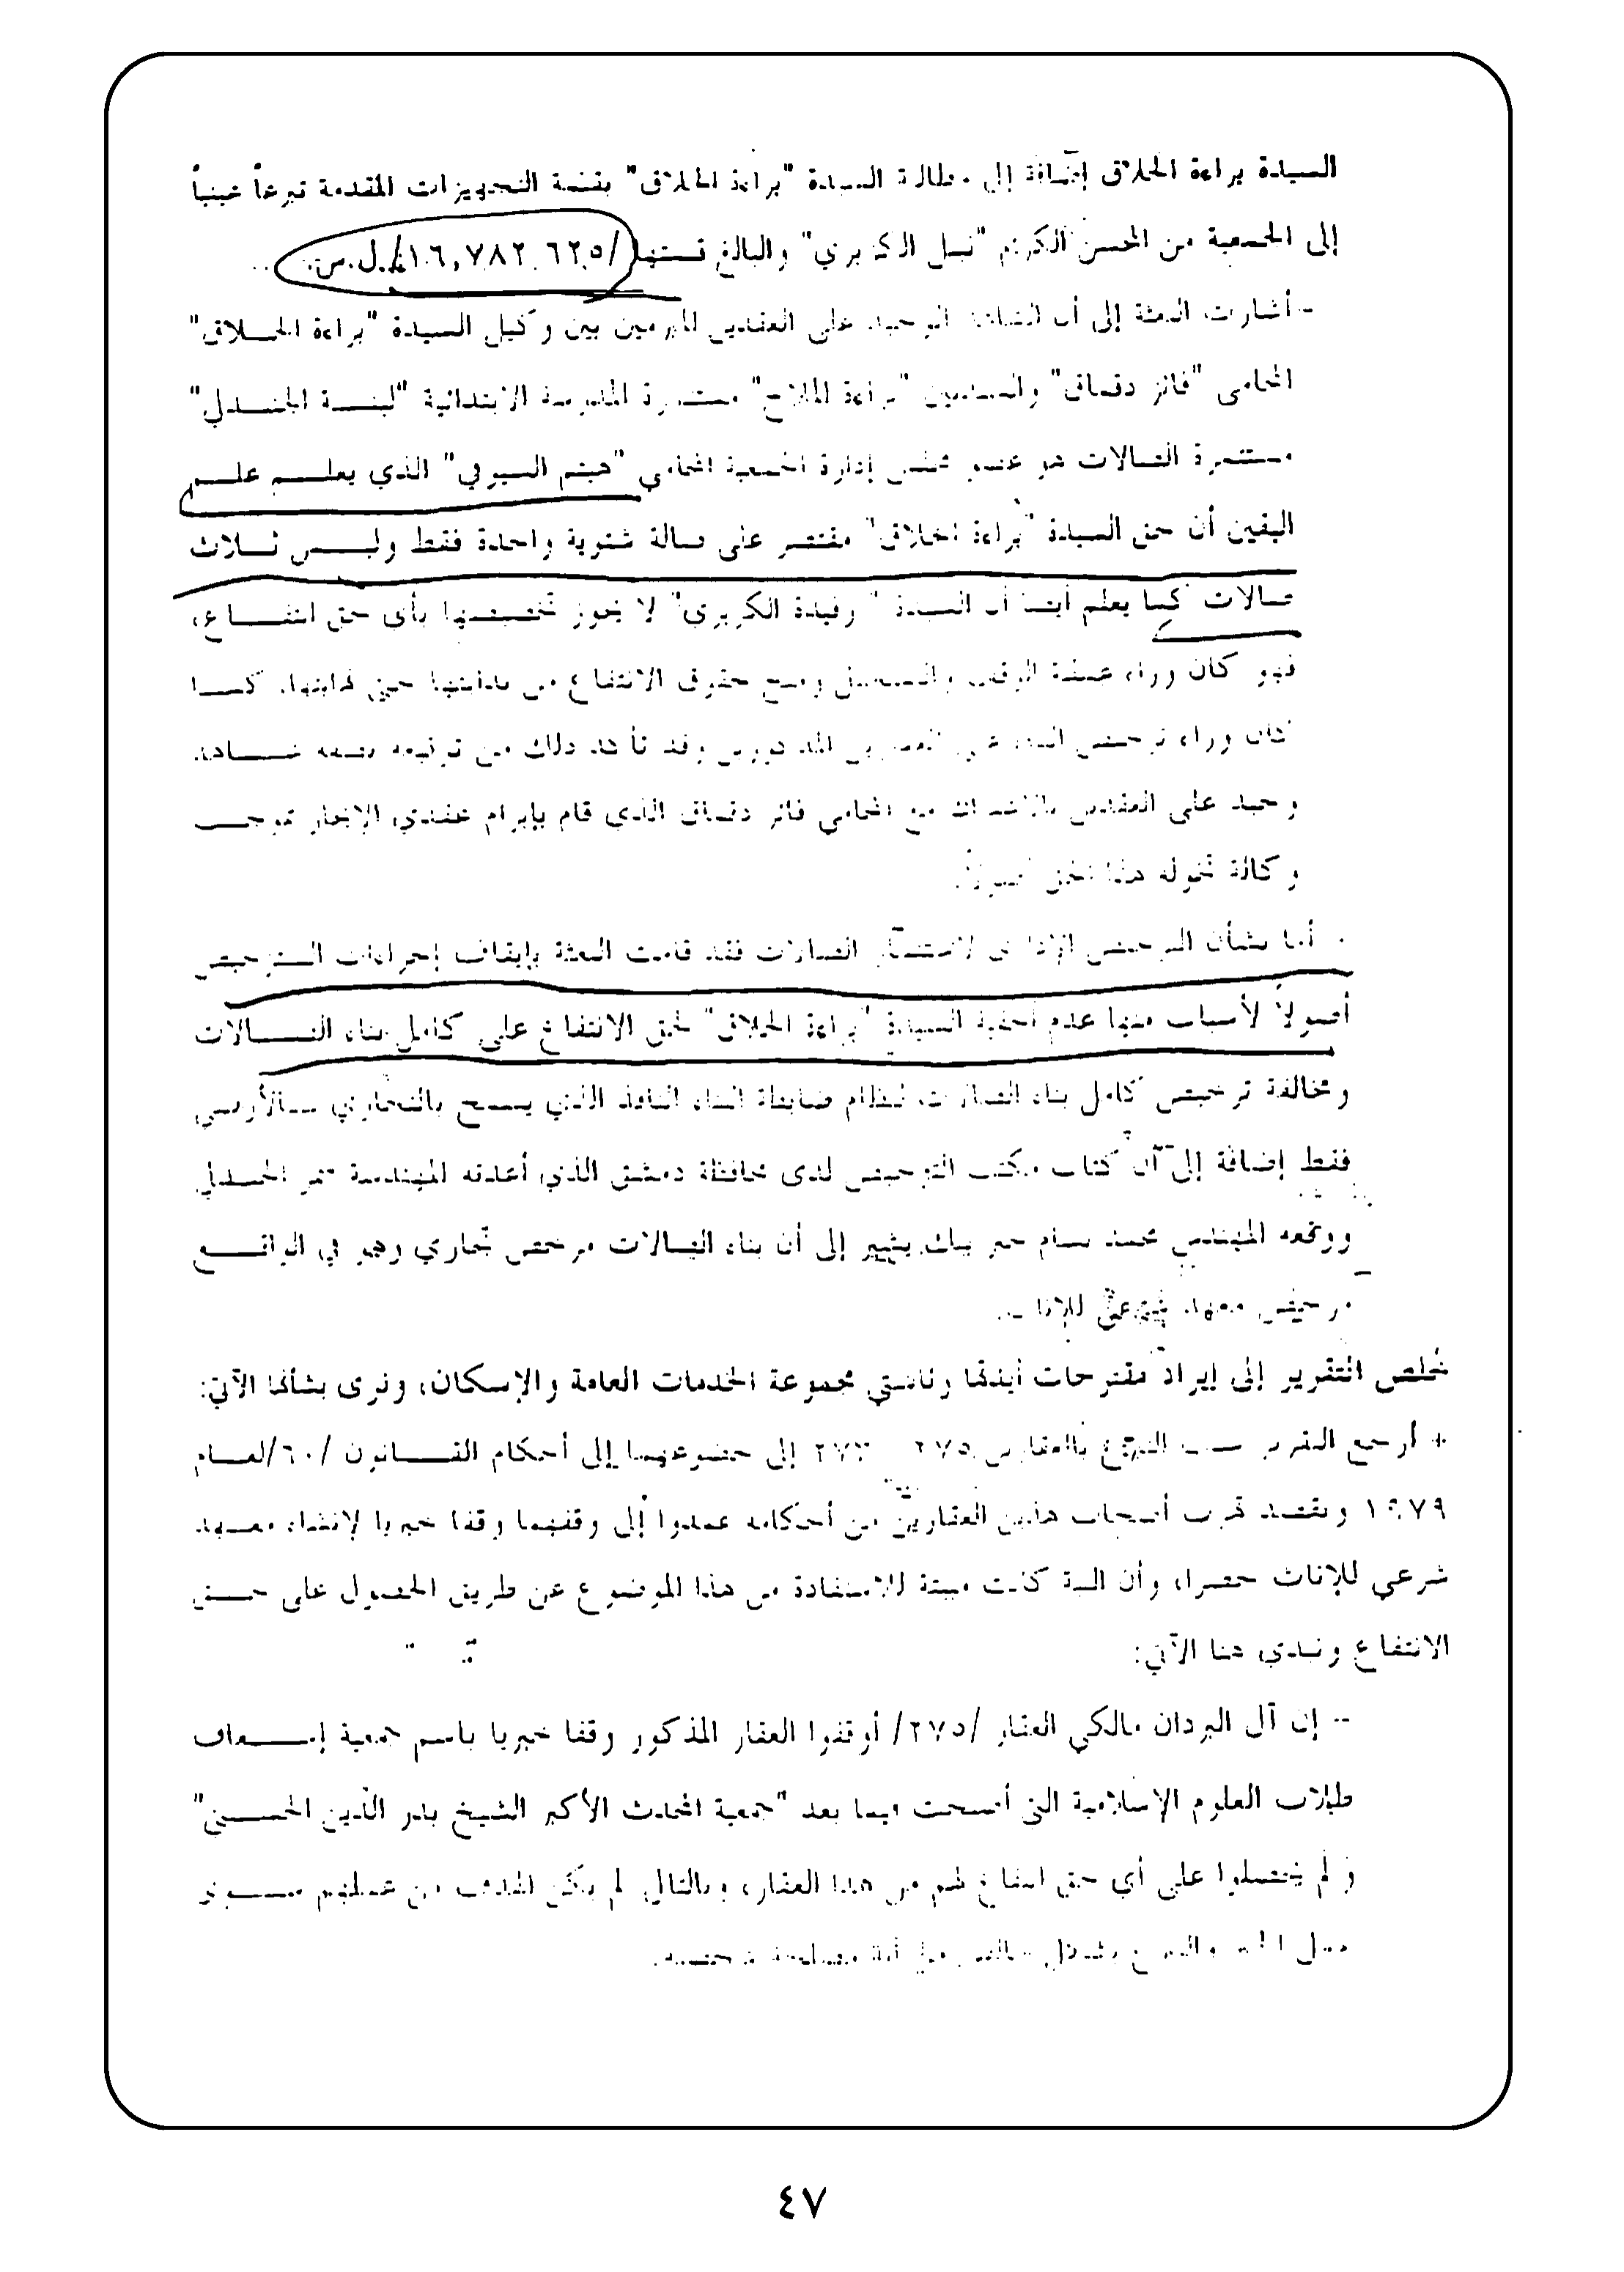 السيدة براءة الحلاق إضافة إلى مطالبة السيدة "براءة الحلاق" بقيمة التجهيزات المقدمة تبرعاً عينياً
إلى الجمعية من المحسن الكريم "نبيل الكزبري" والبالغ قيمتها /١٦,٧٨٢,٦٢٥/ ل.س.
- أشارت البعثة إلى أن الشاهد الوحيد على العقدين المبرمين بين وكيل السيدة "براءة الحلاق"
المحامي "فائز دقماق" والمستثمرين "براءة الملاح" مستثمرة المدرسة الابتدائية "لبنــة الجنــدلي"
مستثمرة الصالات هو عضو مجلس إدارة الجمعية المحامي "هيثم السيوفي" الذي يعلــم علــم
اليقين أن حق السيدة "براءة الحلاق" مقتصر على صالة شتوية واحدة فقط وليــس ثــلاث
صالات كما يعلم أيضاً أن السيدة "رفيدة الكزبري" لا يجوز تخصيصها بأي حق انتفــاع،
فهو كان وراء عملية الوقف ومنح حقوق الانتفاع من بدايتها حتى نهايتها. كمــا
كان وراء ترخيص البناء على وقد تأكد ذلك من توقيعه بصفة شــاهد
وحيد على العقدين بالاشتراك مع المحامي فائز دقماق الذي قام بإبرام عقدي الإيجار بموجــب
وكالة تخوله هذا الحق أصولاً.
- أما بشأن الترخيص الإداري لاستثمار الصالات فقد قامت البعثة بإيقاف إجراءات الــترخيص
أصولاً لأسباب منها عدم أحقية السيدة "براءة الحلاق" لحق الانتفاع على كامل بناء الصــالات
ومخالفة ترخيص كامل بناء الصالات لنظام ضابطة البناء النافذ الذي يسمح بالتجاري بالأرضي
فقط إضافة إلى أن كتاب مكتب الترخيص لدى محافظة دمشق الذي أعدته المهندسة
ووقعه المهندس محمد بسام بيك يشير إلى أن بناء الصالات مرخص تجاري وهو في الواقــع
مرخص معهد شرعي للإناث.
خلص التقرير إلى إيراد مقترحات أيدتها رئاستي مجموعة الخدمات العامة والإسكان، ونرى بشأنها الآتي:
+ أرجع التقرير سبب التبرع بالعقارين ٢٧٥ ٢٧٣ إلى خضوعهما إلى أحكام القــانون /٦٠/لعــام
١٩٧٩ وبقصد تهرب أصحاب هذين العقارين من أحكامه عمدوا إلى وقفهما وقفا خيريا لإنشاء معــهد
شرعي للإناث حصرا، وأن النية كانت مبيتة للاستفادة من هذا الموضوع عن طريق الحصول على حــق
الانتفاع ونبدي هنا الآتي:
- إن آل البردان مالكي العقار /٢٧٥/ أوقفوا العقار المذكور وقفا خيريا باسم جمعية إســعاف
طلاب العلوم الإسلامية التي أصبحت فيما بعد "جمعية المحدث الأكبر الشيخ بدر الدين الحســني"
و لم يحصلوا على أي حق انتفاع لهم من هذا العقار، وبالتالي لم يكن الهدف من عملهم ســوى
عمل الخير أية مصلحة شخصية.
٤٧